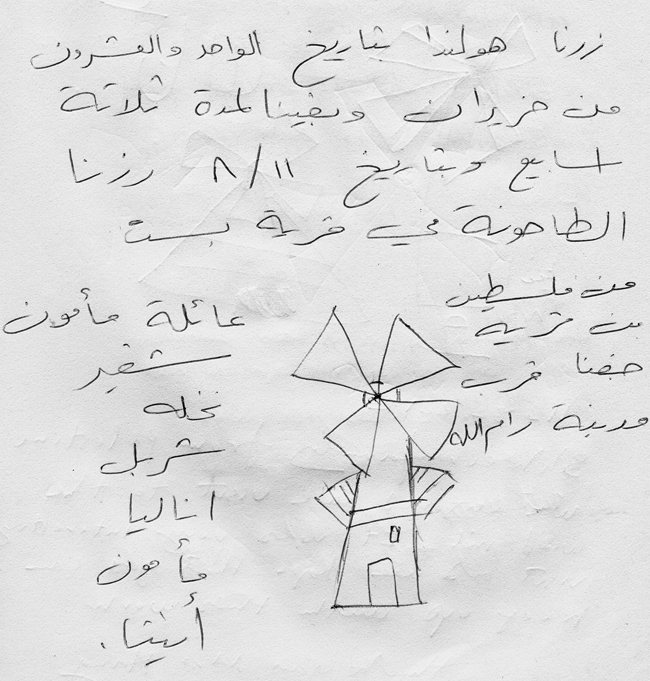 زرنا هولندا بتاريخ الواحد والعشرون
من حزيران وبقينا لمدة ثلاثة
اسابيع وبتاريخ ٨/١١ زرنا
الطاحونة في قرية بست
من فلسطين
من قرية
جفنا قرب
مدينة رام الله
عائلة مأمون
شقير
نخله
شربل
اناليا
مأمون
أنيتا.